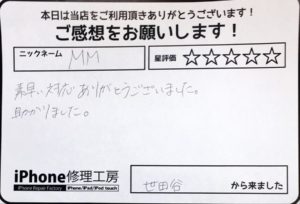 本日は当店をご利用頂きありがとうございます！
ご感想をお願いします！
ニックネーム MM 星評価 ☆☆☆☆☆
素早い対応ありがとうございました。
助かりました。
iPhone修理工房
iPhone Repair Factory iPhone/iPad/iPod touch
世田谷 から来ました